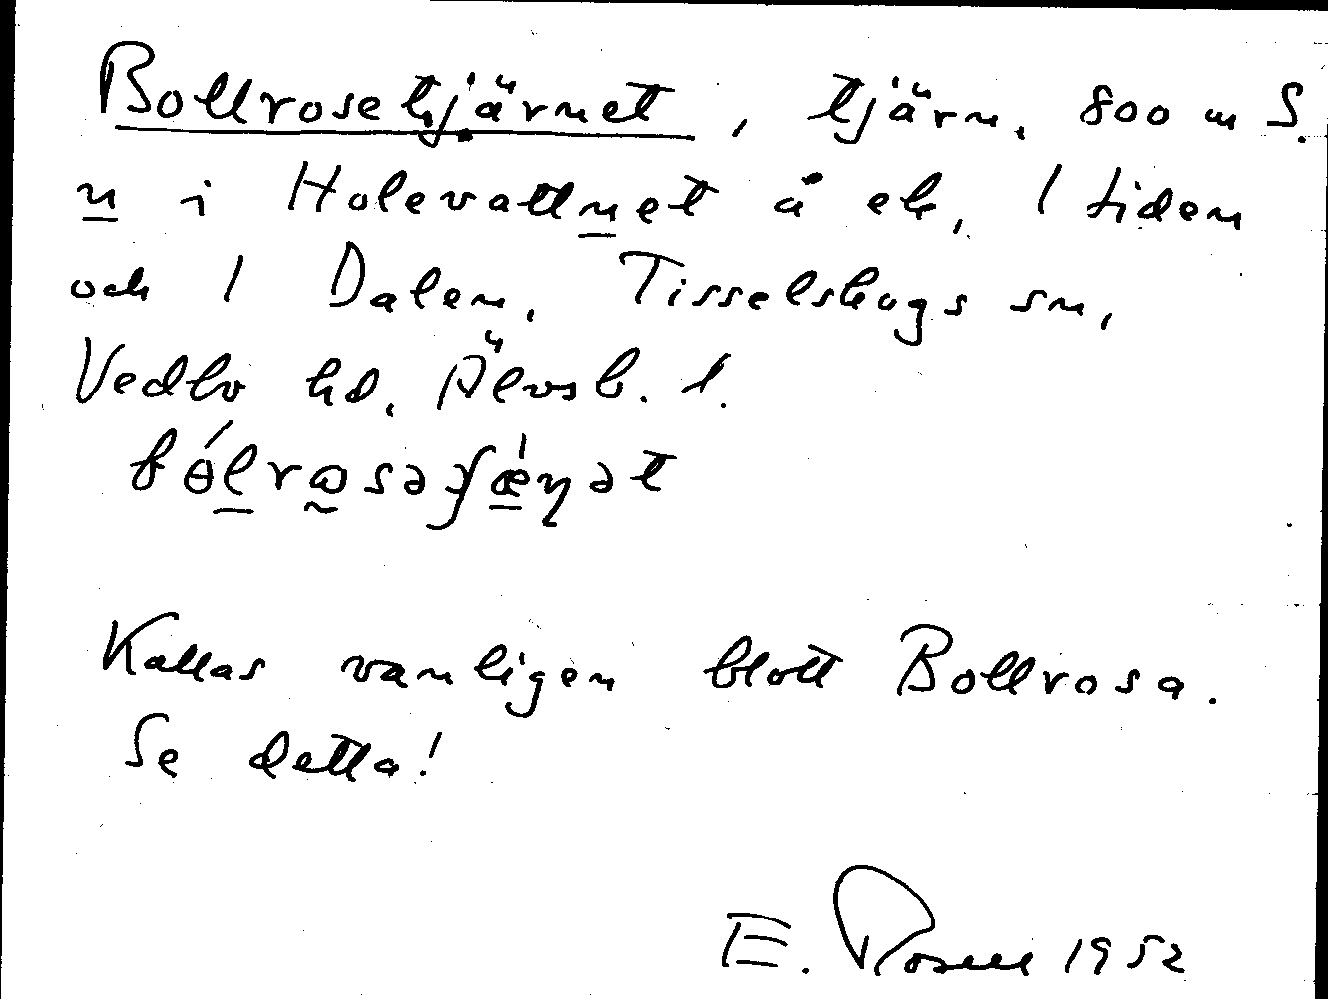 Bollrosetjärnet, tjärn, 800 m S.
n i Holevattnet å ek, 1 tiden
och 1 Dalen, Tisselskogs sn,
Vedbo hd, Älvsb. l.
Kallas vanligen blott Bollrosa.
Se detta!
E. 1952